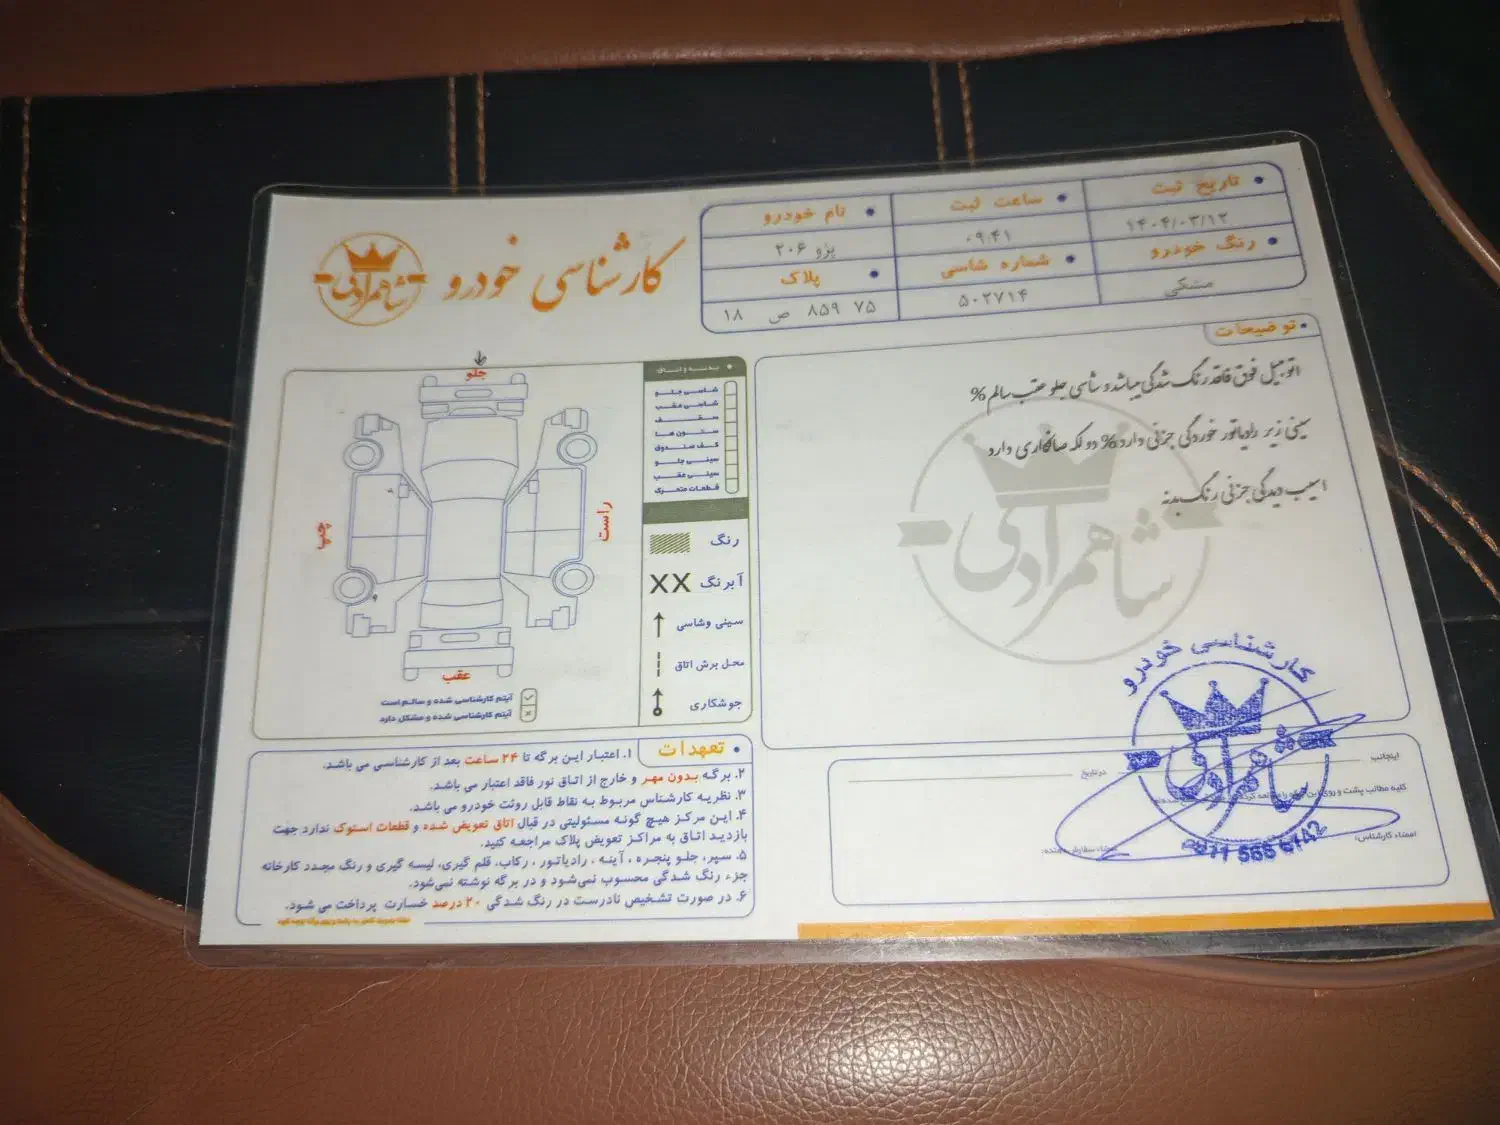 کارشناسی خودرو
شاهمرادی
تاریخ ثبت
ساعت ثبت
نام خودرو
۱۴۰۴/۰۳/۱۲
۰۹:۴۱
پژو ۲۰۶
رنگ خودرو
شماره شاسی
پلاک
مشکی
۵۰۲۷۱۴
۷۵ ۸۵۹ ص ۱۸
توضیحات
اتومبیل فوق فاقد رنگ شدگی میباشد و شاسی جلو عقب سالم %
سینی زیر رادیاتور خوردگی جزئی دارد % دو لکه صافکاری دارد
اسیب دیدگی جزئی رنگ بدنه
شاهمرادی
جلو
راست
چپ
عقب
بدنه و اتاق
شاسی جلو
شاسی عقب
سقف
ستون ها
کف صندوق
سینی جلو
سینی عقب
قطعات متحرک
رنگ
XX آبرنگ
سینی وشاسی
محل برش اتاق
جوشکاری
آیتم کارشناسی شده و سالم است
آیتم کارشناسی شده و مشکل دارد
تعهدات
۱. اعتبار این برگه تا ۲۴ ساعت بعد از کارشناسی می باشد.
۲. برگه بدون مهر و خارج از اتاق نور فاقد اعتبار می باشد.
۳. نظریه کارشناس مربوط به نقاط قابل روئت خودرو می باشد.
۴. این مرکز هیچ گونه مسئولیتی در قبال اتاق تعویض شده و قطعات استوک ندارد جهت
بازدید اتاق به مراکز تعویض پلاک مراجعه کنید.
۵. سپر، جلو پنجره ، آینه ، رادیاتور ، رکاب، قلم گیری، لیسه گیری و رنگ مجدد کارخانه
جزء رنگ شدگی محسوب نمی‌شود و در برگه نوشته نمی‌شود.
۶. در صورت تشخیص نادرست در رنگ شدگی ۲۰ درصد خسارت پرداخت می شود.
اینجانب
در تاریخ
کلیه مطالب پشت و روی این
امضاء کارشناس:
کارشناسی خودرو
شاهمرادی